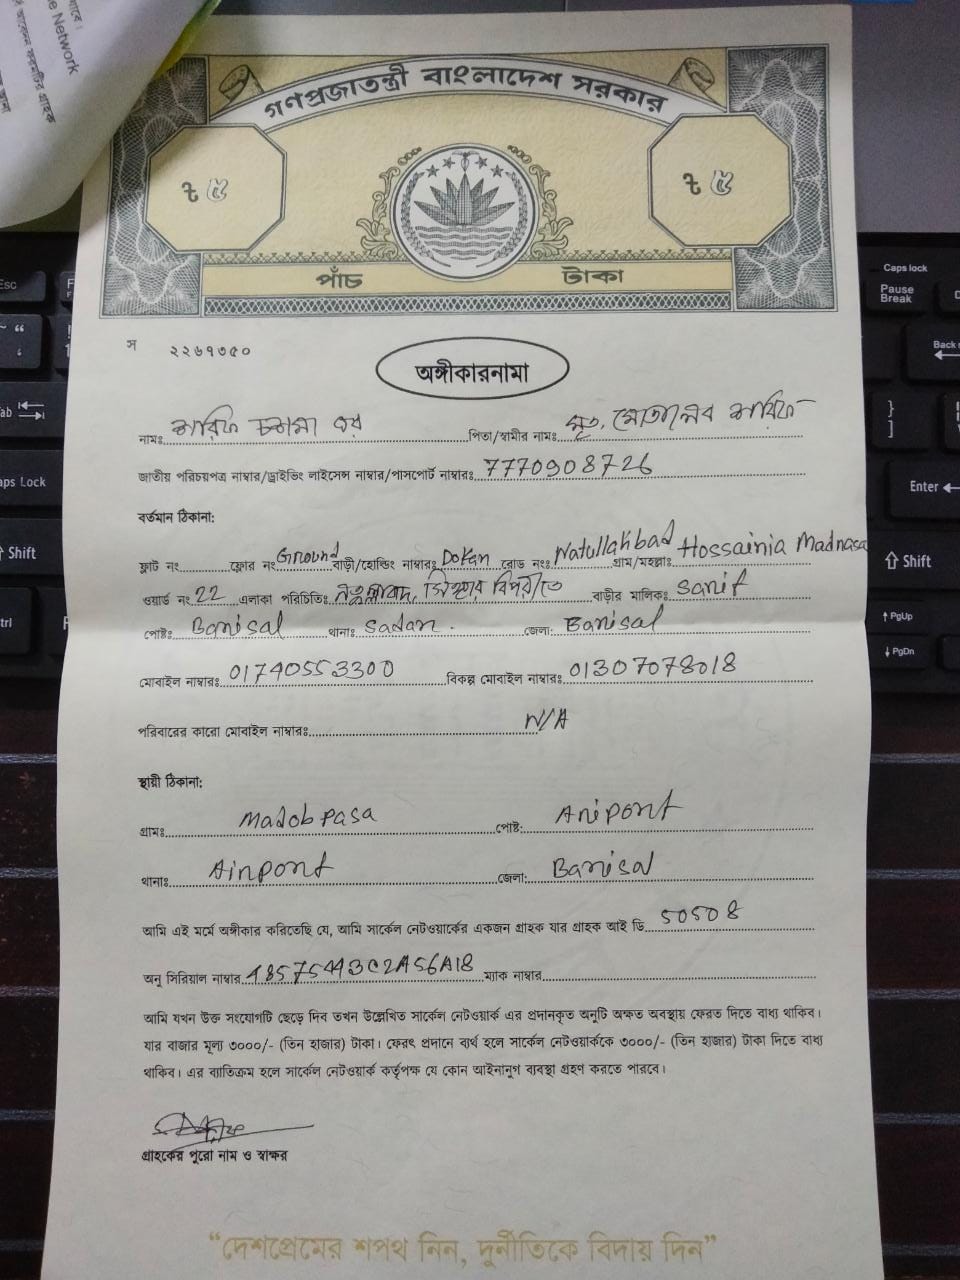 গণপ্রজাতন্ত্রী বাংলাদেশ সরকার
৳ ৫ ৳ ৫
পাঁচ টাকা
স ২২৬৭৩৫০
অঙ্গীকারনামা
নামঃ পিতা/স্বামীর নামঃ মৃত,
জাতীয় পরিচয়পত্র নাম্বার/ড্রাইভিং লাইসেন্স নাম্বার/পাসপোর্ট নাম্বারঃ 7770908726
বর্তমান ঠিকানা:
ফ্লাট নং ফ্লোর নং Ground বাড়ী/হোল্ডিং নাম্বারঃ Dokan রোড নংঃ Natullahbad গ্রাম/মহল্লাঃ Hossainia Madrasa
ওয়ার্ড নং 22 এলাকা পরিচিতিঃ বিপরীতে বাড়ীর মালিকঃ Sarif
পোষ্টঃ Barisal থানাঃ Sadar. জেলা: Barisal
মোবাইল নাম্বারঃ 01740553300 বিকল্প মোবাইল নাম্বারঃ 01307078018
পরিবারের কারো মোবাইল নাম্বারঃ N/A
স্থায়ী ঠিকানা:
গ্রামঃ Madobpasa পোষ্ট: Airport
থানাঃ Airport জেলা: Barisal
আমি এই মর্মে অঙ্গীকার করিতেছি যে, আমি সার্কেল নেটওয়ার্কের একজন গ্রাহক যার গ্রাহক আই ডি 50508
অনু সিরিয়াল নাম্বার 48575443C2A56A18 ম্যাক নাম্বার
আমি যখন উক্ত সংযোগটি ছেড়ে দিব তখন উল্লেখিত সার্কেল নেটওয়ার্ক এর প্রদানকৃত অনুটি অক্ষত অবস্থায় ফেরত দিতে বাধ্য থাকিব।
যার বাজার মূল্য ৩০০০/- (তিন হাজার) টাকা। ফেরৎ প্রদানে ব্যর্থ হলে সার্কেল নেটওয়ার্ককে ৩০০০/- (তিন হাজার) টাকা দিতে বাধ্য
থাকিব। এর ব্যতিক্রম হলে সার্কেল নেটওয়ার্ক কর্তৃপক্ষ যে কোন আইনানুগ ব্যবস্থা গ্রহণ করতে পারবে।
গ্রাহকের পুরো নাম ও স্বাক্ষর
“দেশপ্রেমের শপথ নিন, দুর্নীতিকে বিদায় দিন”